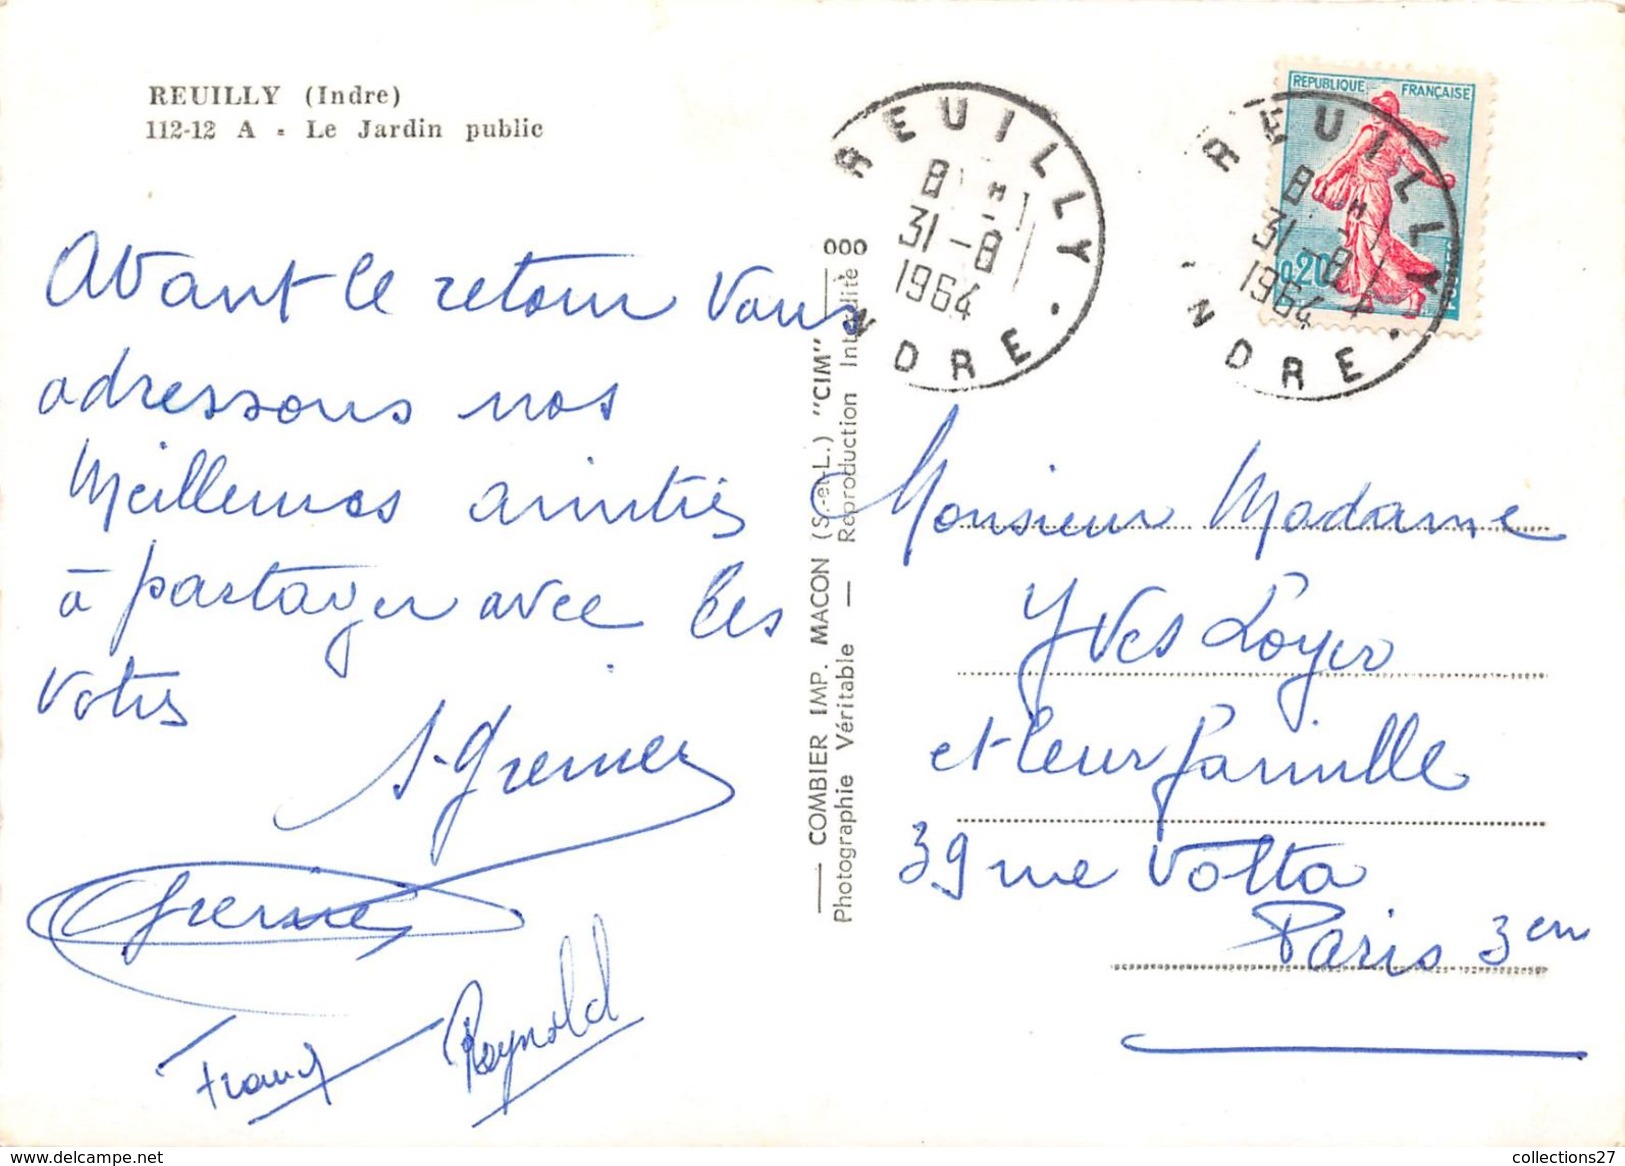 REUILLY (Indre)
112-12 A - Le Jardin public
Avant le retour vous
adressons nos
Meilleures amitiés
à partager avec les
votres
Franck Reynold
COMBIER IMP. MACON (S.-et-L.) "CIM"
Photographie Véritable — Reproduction Interdite
000
REUILLY
8 H
31-8
1964
INDRE
REUILLY
8 H
31-8
1964
INDRE
REPUBLIQUE FRANÇAISE
0,20
Monsieur Madame
Yves Loyer
et leur famille
39 rue Volta
Paris 3em
delcampe.net
collections27